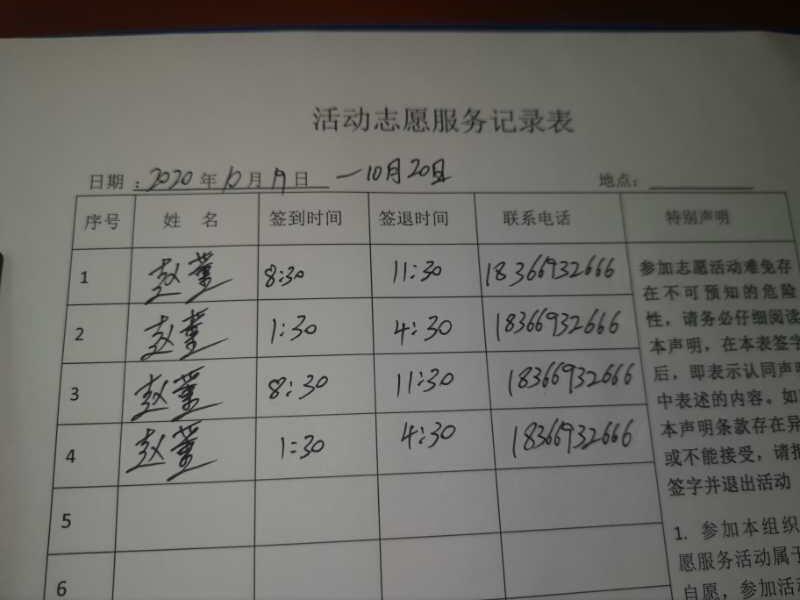 活动志愿服务记录表
日期：2020年10月19日 —10月20日 地点：
序号 姓 名 签到时间 签退时间 联系电话 特别声明
1 赵董 8:30 11:30 18366932666
2 赵董 1:30 4:30 18366932666
3 赵董 8:30 11:30 18366932666
4 赵董 1:30 4:30 18366932666
5
6
参加志愿活动难免存
在不可预知的危险
性，请务必仔细阅读
本声明，在本表签字
后，即表示认同声明
中表述的内容。如
本声明条款存在异
或不能接受，请
签字并退出活动
1. 参加本组织
愿服务活动属于
自愿，参加活动